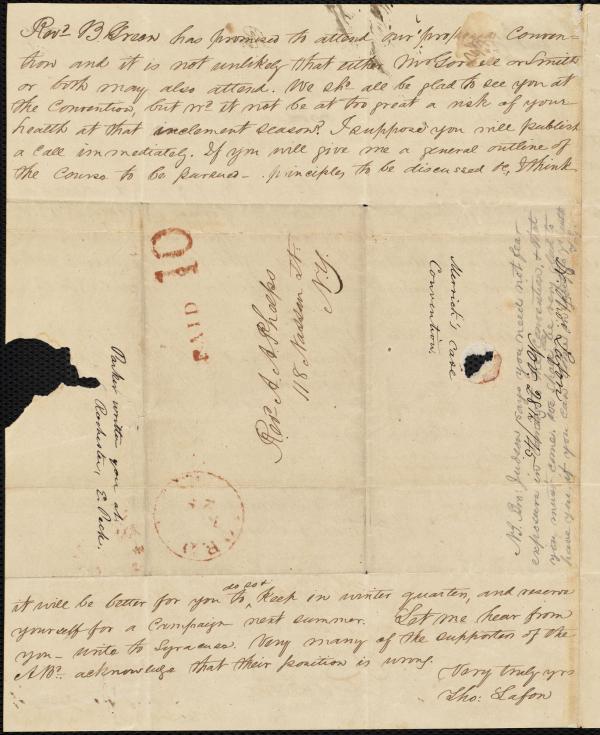 Rev.d B Green has promised to attend our proposed Conven-
tion and it is not unlikely that either Mr or Smith
or both may also attend. We shd. all be glad to see you at
the Convention, but wd. it not be at too great a risk of your
health at that inclement season? I suppose you will publish
a Call immediately. If you will give me a general outline of
the Course to be pursued - principles to be discussed &c, I think
PAID 10
Rev. A. A. Phelps
118 Nassau St.
N.Y.
Merrick's, Care
Convention.
Parker written you at
Rochester, E. Peck.
N.B. Bro. Judson says you need not fear
exposure in Convention, & that
you must come. We shall be
have you if you can
Nov. 28 /45
it will be better for you to, do so & Keep in winter quarters, and reserve
yourself for a Campaign next summer. Let me hear from
you - write to Syracuse. Very many of the supporters of the
A Bd. acknowledge that their position is wrong.
Very truly yrs
Tho: Lafon